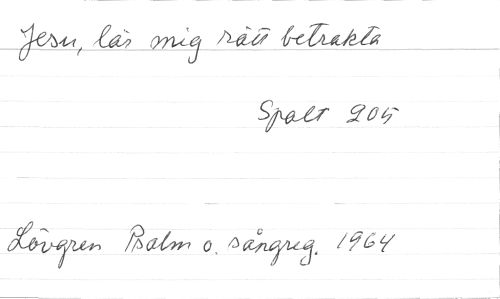 Jesu, lär mig rätt betrakta
Spalt 205
Lövgren Psalm o. sångreg. 1964